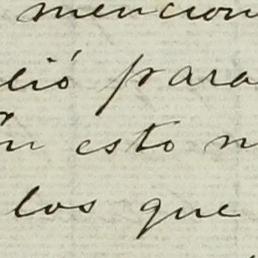 mencion
lió para
ín esto n
los que